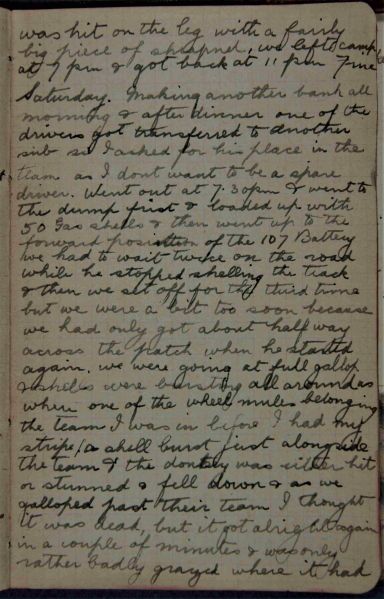 was hit on the leg with a fairly
big piece of shrapnel, we left camp
at 7 pm & got back at 11 pm fine
Saturday. Making another bank all
morning & after dinner one of the
drivers got transferred to another
sub so I asked for his place in the
team as I dont want to be a spare
driver. Went out at 7.30pm & went to
the dump first & loaded up with
50 Gas shells & then went up to the
forward position of the 107 Battery
we had to wait twice on the road
while he stopped shelling the track
& then we set off for the third time
but we were a bit too soon because
we had only got about half way
across the patch when he started
again. we were going at full gallop
& shells were bursting all around us
where one of the wheel mules belonging
the team I was in before I had my
stripe, a shell burst just alongside
the team & the donkey was either hit
or stunned & fell down & as we
galloped past their team I thought
it was dead, but it got alright again
in a couple of minutes & was only
rather badly grazed where it had